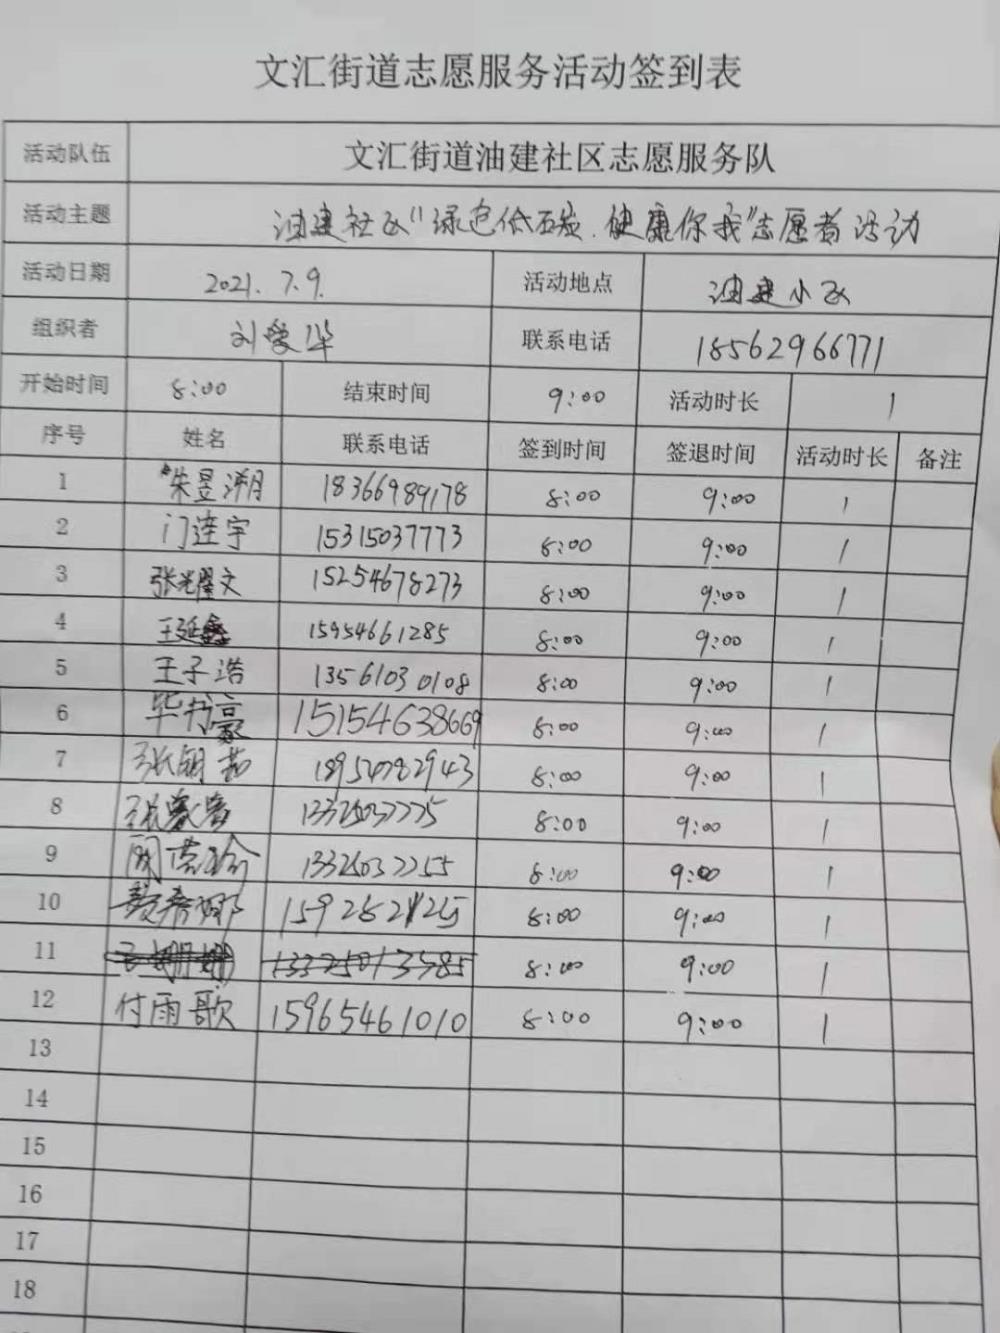 文汇街道志愿服务活动签到表
活动队伍 文汇街道油建社区志愿服务队
活动主题 油建社区"绿色低碳.健康你我"志愿者活动
活动日期 2021.7.9. 活动地点 油建小区
组织者 刘爱华 联系电话 18562966771
开始时间 8:00 结束时间 9:00 活动时长 1
序号 姓名 联系电话 签到时间 签退时间 活动时长 备注
1 朱昱溯 18366989178 8:00 9:00 1
2 门莲宇 15315037773 8:00 9:00 1
3 张光耀文 15254678273 8:00 9:00 1
4 王延鑫 15954661285 8:00 9:00 1
5 王子浩 13561030108 8:00 9:00 1
6 毕力豪 15154638669 8:00 9:00 1
7 张朝 18954782943 8:00 9:00 1
8 张 8:00 9:00 1
9 13325032255 8:00 9:00 1
10 8:00 9:00 1
11 8:00 9:00 1
12 付雨歌 15965461010 8:00 9:00 1
13
14
15
16
17
18